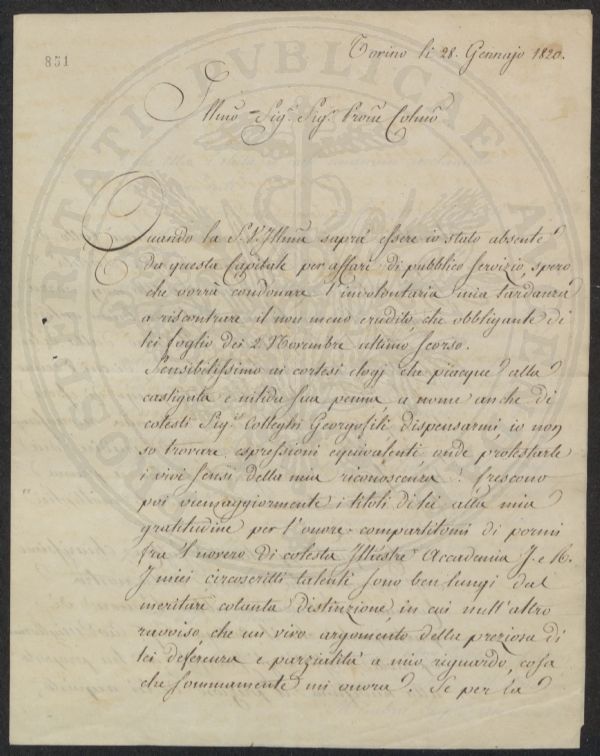 Torino li 28. Gennajo 1820.
851
Illmo Sigr. Sigr. Prone Colmo
Quando la S.V. Illma saprà essere io stato absente
da questa Capitale per affari di pubblico servizio, spero
che vorrà condonare l'involontaria mia tardanza
a riscontrare il non meno erudito, che obbligante di
lei foglio dei 2 Novembre ultimo scorso.
Sensibilissimo ai cortesi elogj che piacque alla
castigata e nitida sua penna a nome anche di
cotesti Sigri Colleghi Georgofili dispensarmi io non
so trovare espressioni equivalenti onde protestarle
i vivi sensi della mia riconoscenza. Crescono
poi viemaggiormente i titoli di lei alla mia
gratitudine per l'onore compartitomi di pormi
fra 'l novero di cotesta Illustre Accademia I. e R.
I miei circoscritti talenti sono ben lungi dal
meritare cotanta distinzione in cui null'altro
ravviso, che un vivo argomento della preziosa di
lei deferenza e parzialità a mio riguardo, cosa
che sommamente mi onora. Se per la